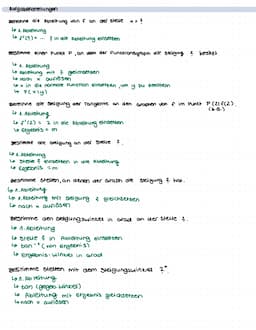 Aufgabenstellungen
Bestimme die Ableitung von f an der Stelle x = ?
↳ 1. Ableitung
↳ f'(?) = ... ? in die Ableitung einsetzen
Bestimme einen Punkt P, an dem der Funktionsgraph die Steigung ? besitzt
↳ 1. Ableitung
↳ Ableitung mit ? gleichsetzen
↳ nach x auflösen
↳ x in die normale Funktion einsetzen, um y zu erhalten
↳ P(x|y)
Bestimme die Steigung der Tangente an den Graphen von f im Punkt P(2|f(2))
↳ 1. Ableitung
↳ f'(2) = 2 in die Ableitung einsetzen
↳ Ergebnis = m
Bestimme die Steigung an der Stelle ?.
↳ 1. Ableitung
↳ Stelle ? einsetzen in die Ableitung
↳ Ergebnis = m
Bestimme Stellen, an denen der Graph die Steigung ? hat.
↳ 1. Ableitung
↳ 1. Ableitung mit Steigung ? gleichsetzen
↳ nach x auflösen
Bestimme den Steigungswinkel in Grad an der Stelle ?.
↳ 1. Ableitung
↳ Stelle ? in Ableitung einsetzen
↳ tan⁻¹ (von Ergebnis)
↳ Ergebnis: Winkel in Grad
Bestimme Stellen mit dem Steigungswinkel ?°
↳ 1. Ableitung
↳ tan (gegeb. Winkel)
↳ Ableitung mit Ergebnis gleichsetzen
↳ nach x auflösen